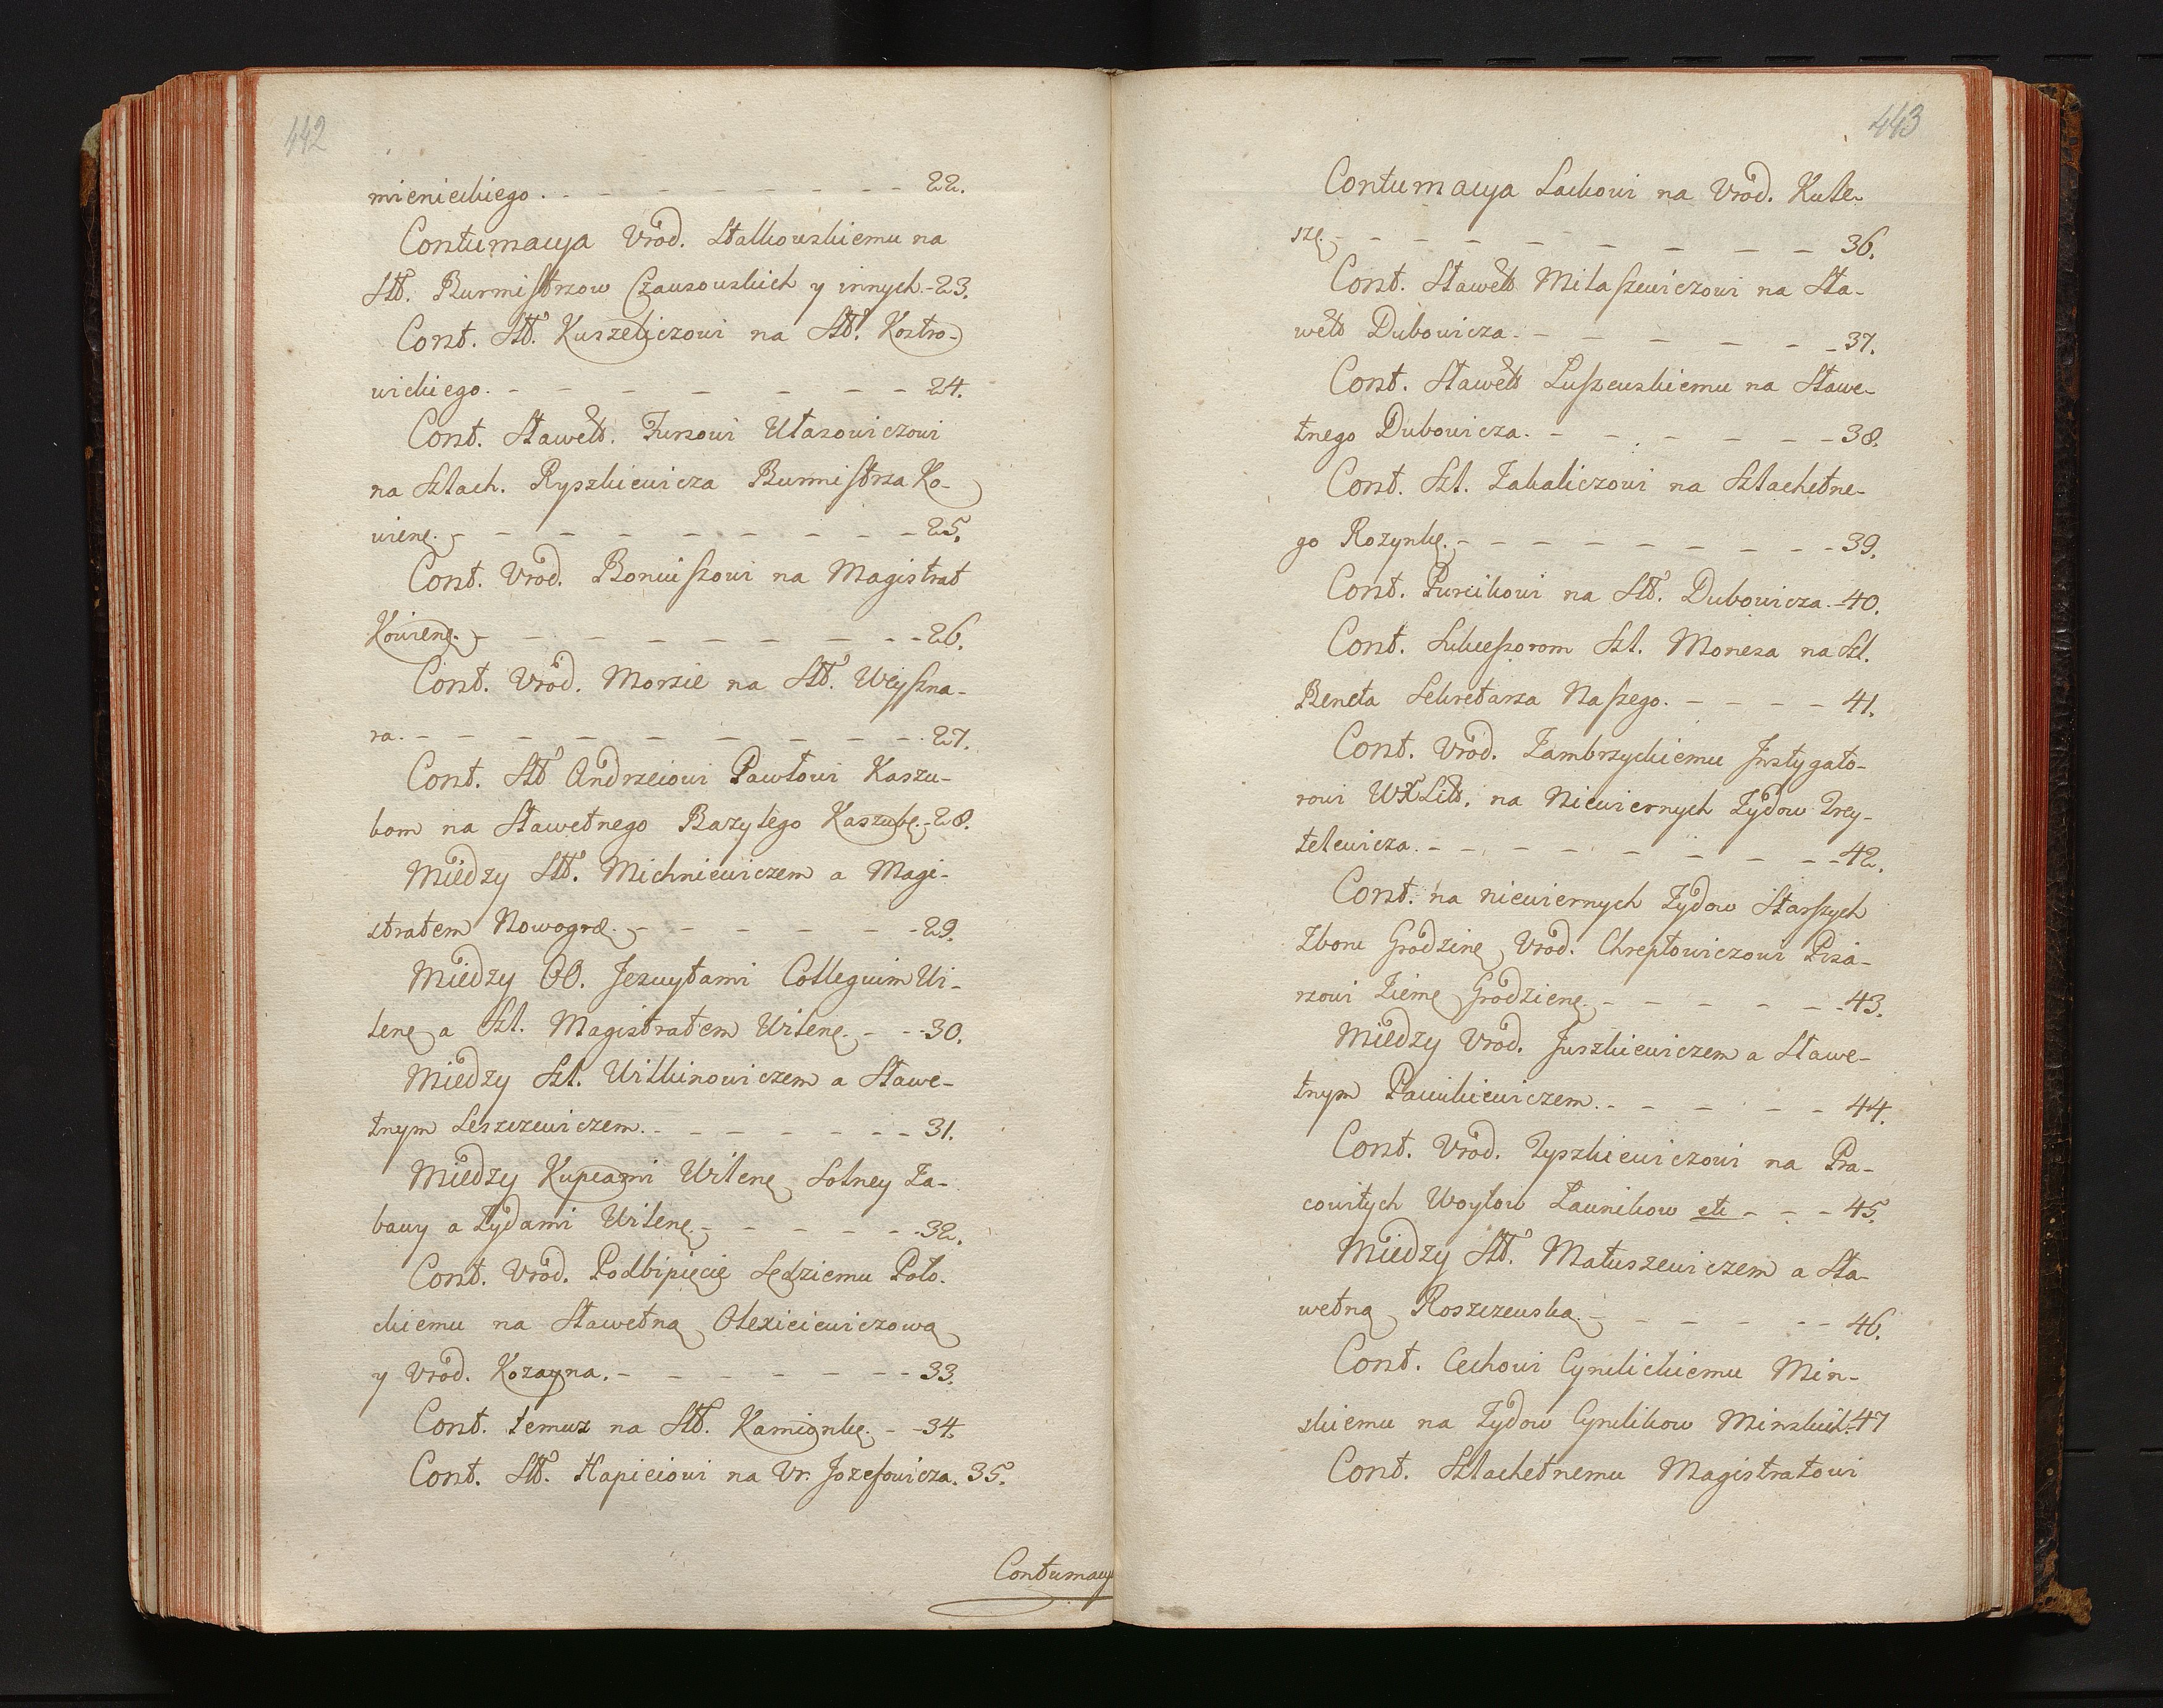 442
mienickiego. - - - - - - - - - 22.
Contumacya Vrod. Stalkowskiemu na
Sttt. Burmistrzow Czausowskich y innych. - 23.
Const. Sttt. Kuszeliczowi na Sttt. Kostro-
wickiego. - - - - - - - - 24.
Const. Stawett. Fursowi Utasowiczowi
na Sztach. Ryszkiewicza Burmistrza Ko-
wienę. - - - - - - - - - 25.
Const. Vrod. Boniuszowi na Magistrat
Kowienę. - - - - - - - - - 26.
Const. Vrod. Morzie na Sttt. Weyszna-
ra. - - - - - - - - - 27.
Const. Sttt Andrzeiowi Pawłowi Kaszu-
bom na Sławetnego Bazylego Kaszubę. - 28.
Miedzy Sttt. Michniewiczem a Magi-
stratem Nowogrod. - - - - - - 29.
Miedzy OO. Jezuytami Colleguim Wi-
lenę a Szl. Magistratem Wilenę. - - 30.
Miedzy Szl. Witkinowiczem a Sławe-
tnym Leszczewiczem. - - - - - - - 31.
Miedzy Kupcami Wilenę Solney Za-
bawy a Zydami Wilenę. - - - - - - 32.
Const. Vrod. Podbipięcie Sędziemu Poło-
ckiemu na Sławetną Olexieiewiczową
y Vrod. Kozayna. - - - - - - - 33.
Const. temuz na Sttt. Kamionkę. - - 34.
Const. Sttt. Hapieiowi na Vr. Jozefowicza. 35.
Contumacy
443
Contumacya Lackowi na Vrod. Kule-
szę. - - - - - - - - - 36.
Const. Stawett Milaszewiczowi na Sta-
wett Dubowicza. - - - - - - 37.
Const. Stawett Luszewskiemu na Sławe-
tnego Dubowicza. - - - - - - 38.
Const. Szl. Zakaliczowi na Szlachetne-
go Rozynkę. - - - - - - - - 39.
Const. Purcikowi na Sttt. Dubowicza. - 40.
Const. Sukcessorom Szl. Moneza na Szl.
Beneta Sekretarza Naszego. - - - - 41.
Const. Vrod. Zambrzyckiemu Jnstygato-
rowi WXLitt. na Niewiernych Zydow Irey-
telewicza. - - - - - - - - 42.
Const. na niewiernych Zydow Starszych
Zboru Grodzinę Vrod. Chreptowiczowi Pisa-
rzowi Ziemę Grodzienę. - - - - - 43.
Miedzy Vrod. Juszkiewiczem a Sławe-
tnym Pawukiewiczem. - - - - - 44.
Const. Vrod. Zyszkiewiczowi na Pra-
cowitych Woytow Ławnikow etc - - - 45.
Miedzy Sttt. Matuszewiczem a Sła-
wetną Roszczewską. - - - - - - 46.
Const. Cechowi Cyrulickiemu Min-
skiemu na Zydow Cyrulikow Minskich. - 47
Const. Szlachetnemu Magistratowi